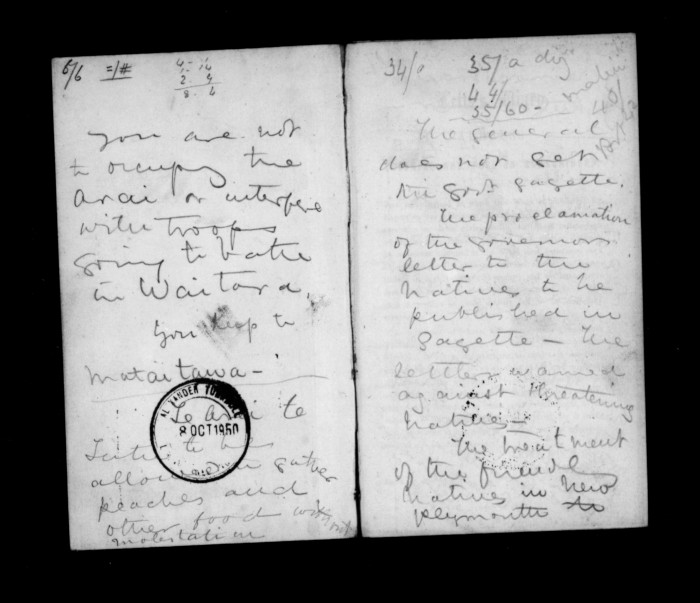 6/6 =/#
4 - 16
2 . 4
8 . 6
You are not
to occupy the
Arai or interfere
with troops
going to bathe
in Waitara,
You keep to
Mataitawa -
Te Arai te
ALEXANDER TURNBULL
8 OCT 1950
to be
allowed gather
peaches and
other food without
molestation
34/0
35/ a day
44/
35/60 -
40/
The general
does not get
the govt gazette.
The proclamation
of the governors
letter to the
natives to be
published in
gazette - The
settlers warned
against threatening
natives -
The treatment
of the friendly
natives in New
Plymouth to